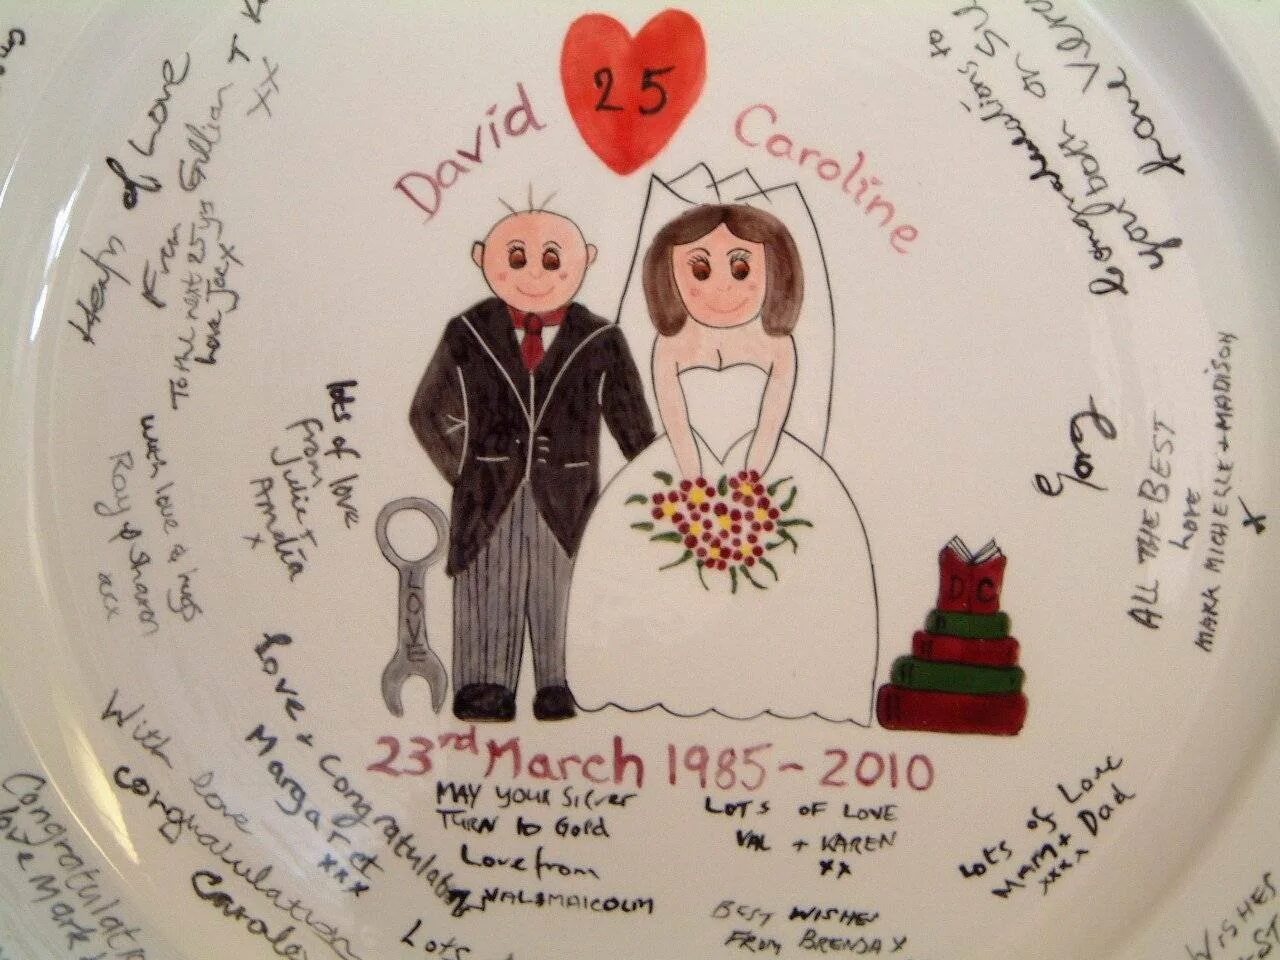 25
David
Caroline
Heaps of Love
From Gillian
To the next 25 yrs
Love Joe x
xx
lots of love
From
Julie +
Amelia
x
with love & hugs
Ray & Sharon
xxx
LOVE
D C
Congratulations to
you both on
Love Vera
ALL THE BEST
LOVE
MARK MICHELLE + MADISON
x
23rd March 1985 - 2010
MAY YOUR SILVER
TURN TO GOLD
Love from
VAL & MALCOLM
LOTS OF LOVE
VAL + KAREN
xx
BEST WISHES
FROM BRENDA X
Lots of Love
Mam + Dad
xxxx
Love + Congratulations
Margaret
xxx
With love
congratulations
Carole
Congratulations
love Mark
Lots
WISHES